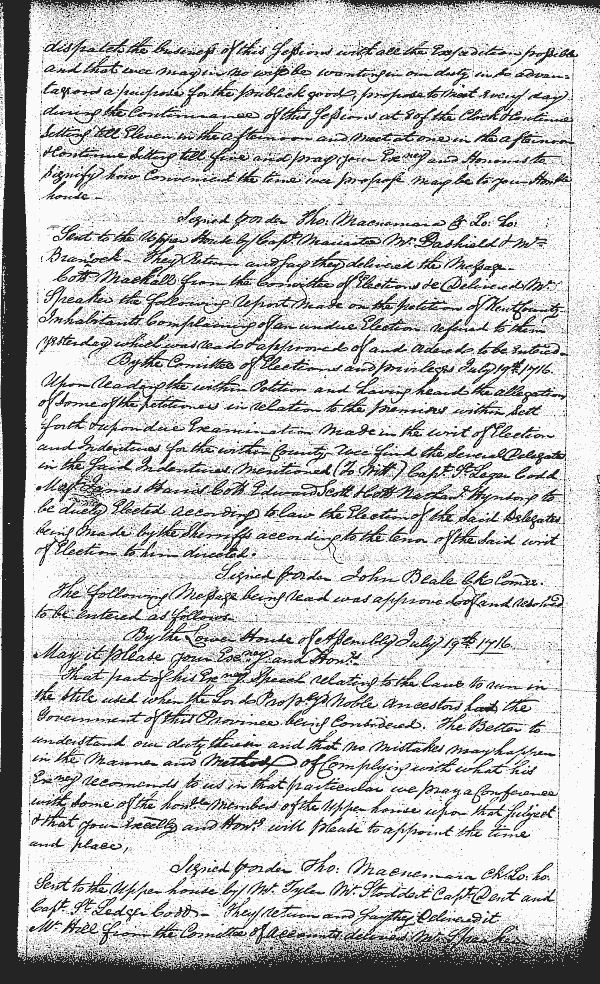 dispatch the business of this Sessions with all the Expedition possible
and that wee may in no wise be wanting in our duty in so advan-
tageous a purpose for the publick good, propose to meet every day
during the Continuance of this Sessions at 8 of the Clock & Continue
Sitting till Eleven in the afternoon and meet at one in the afternoon
& Continue Sitting till five and pray your Exncy and Honours to
signify how Convenient the time wee propose may be to your Honble
house -
Signed p order Tho: Macnemara Ck Lo: ho.
Sent to the Upper House by Capt. Mr. Dashield & Mr
Brannock - They Return and say they delivered the Message.
Coll. Mackall from the Comittee of Elections &c Delivered Mr.
Speaker the following report made on the petition of Kent County
Inhabitants Complaining of an undue Election refered to them
yesterday which was read & approved of and ordered to be Entred.
By the Comittee of Elections and priviledges July 19th 1716.
Upon reading the within Petition and having heard the allegation
of some of the petitioners in relation to the premises within Sett
forth & upon due Examination made in the writ of Election
and Indentures for the within County Wee find the Several Delegates
in the Said Indentures mentioned (To Witt.) Capt. St. Leger Codd
James Harris Coll Edward Scott & Coll Nathanl. Hynson to
be duely Elected according to law the Election of the Said Delegates
being made by the Sherriffs according to the tenor of the Said writ
of Election to him directed.
Signed p order John Beale Ck Comee.
The following Message being read was approved of and resolved
to be entered as follows.
By the Lower House of Assembly July 19th 1716.
May it please your Excncy and Honrs.
That part of his Exncy Speech relating to the laws to run in
the Stile used when the Lord Proprys Noble Ancestors had the
Government of this Province being Considered. The Better to
understand our duty therein and that no mistakes may happen
in the Manner and Method of Complying with what his
Exncy recomends to us in that particular we pray a Conference
with Some of the honble Members of the Upper house upon that Subject
& that your Excelly and Honrs. will please to appoint the time
and place,
Signed p order Tho: Macnemara Ck Lo: ho.
Sent to the Upper house by Mr. Tyler Mr. Stoddert Capt. Dent and
Capt. St. Ledger Codd - They return and say they Delivered it
Mr. Hill from the Comittee of Accounts delivers Mr. Speaker